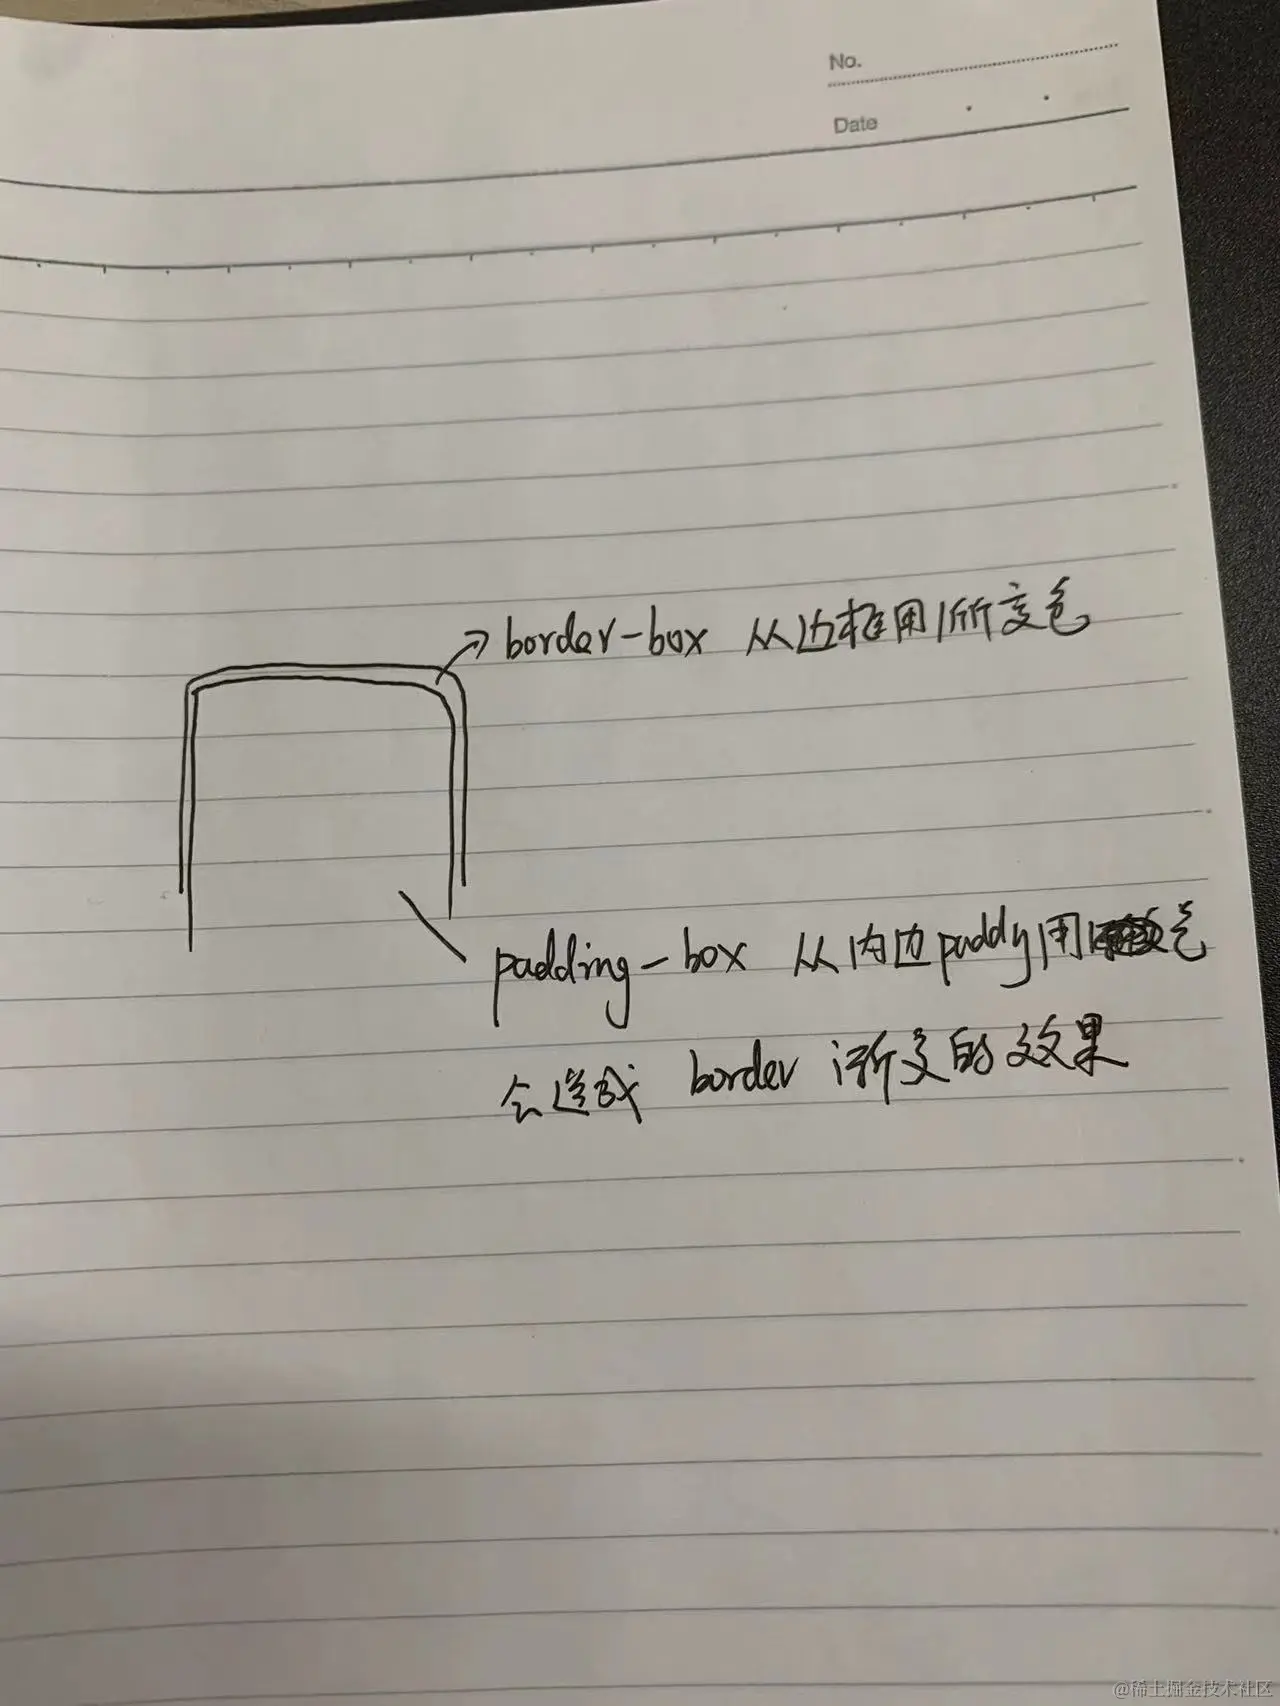 No.
Date
border-box 从边框用渐变色
padding-box 从内边paddy用色
会造成 border 渐变的效果
@稀土掘金技术社区